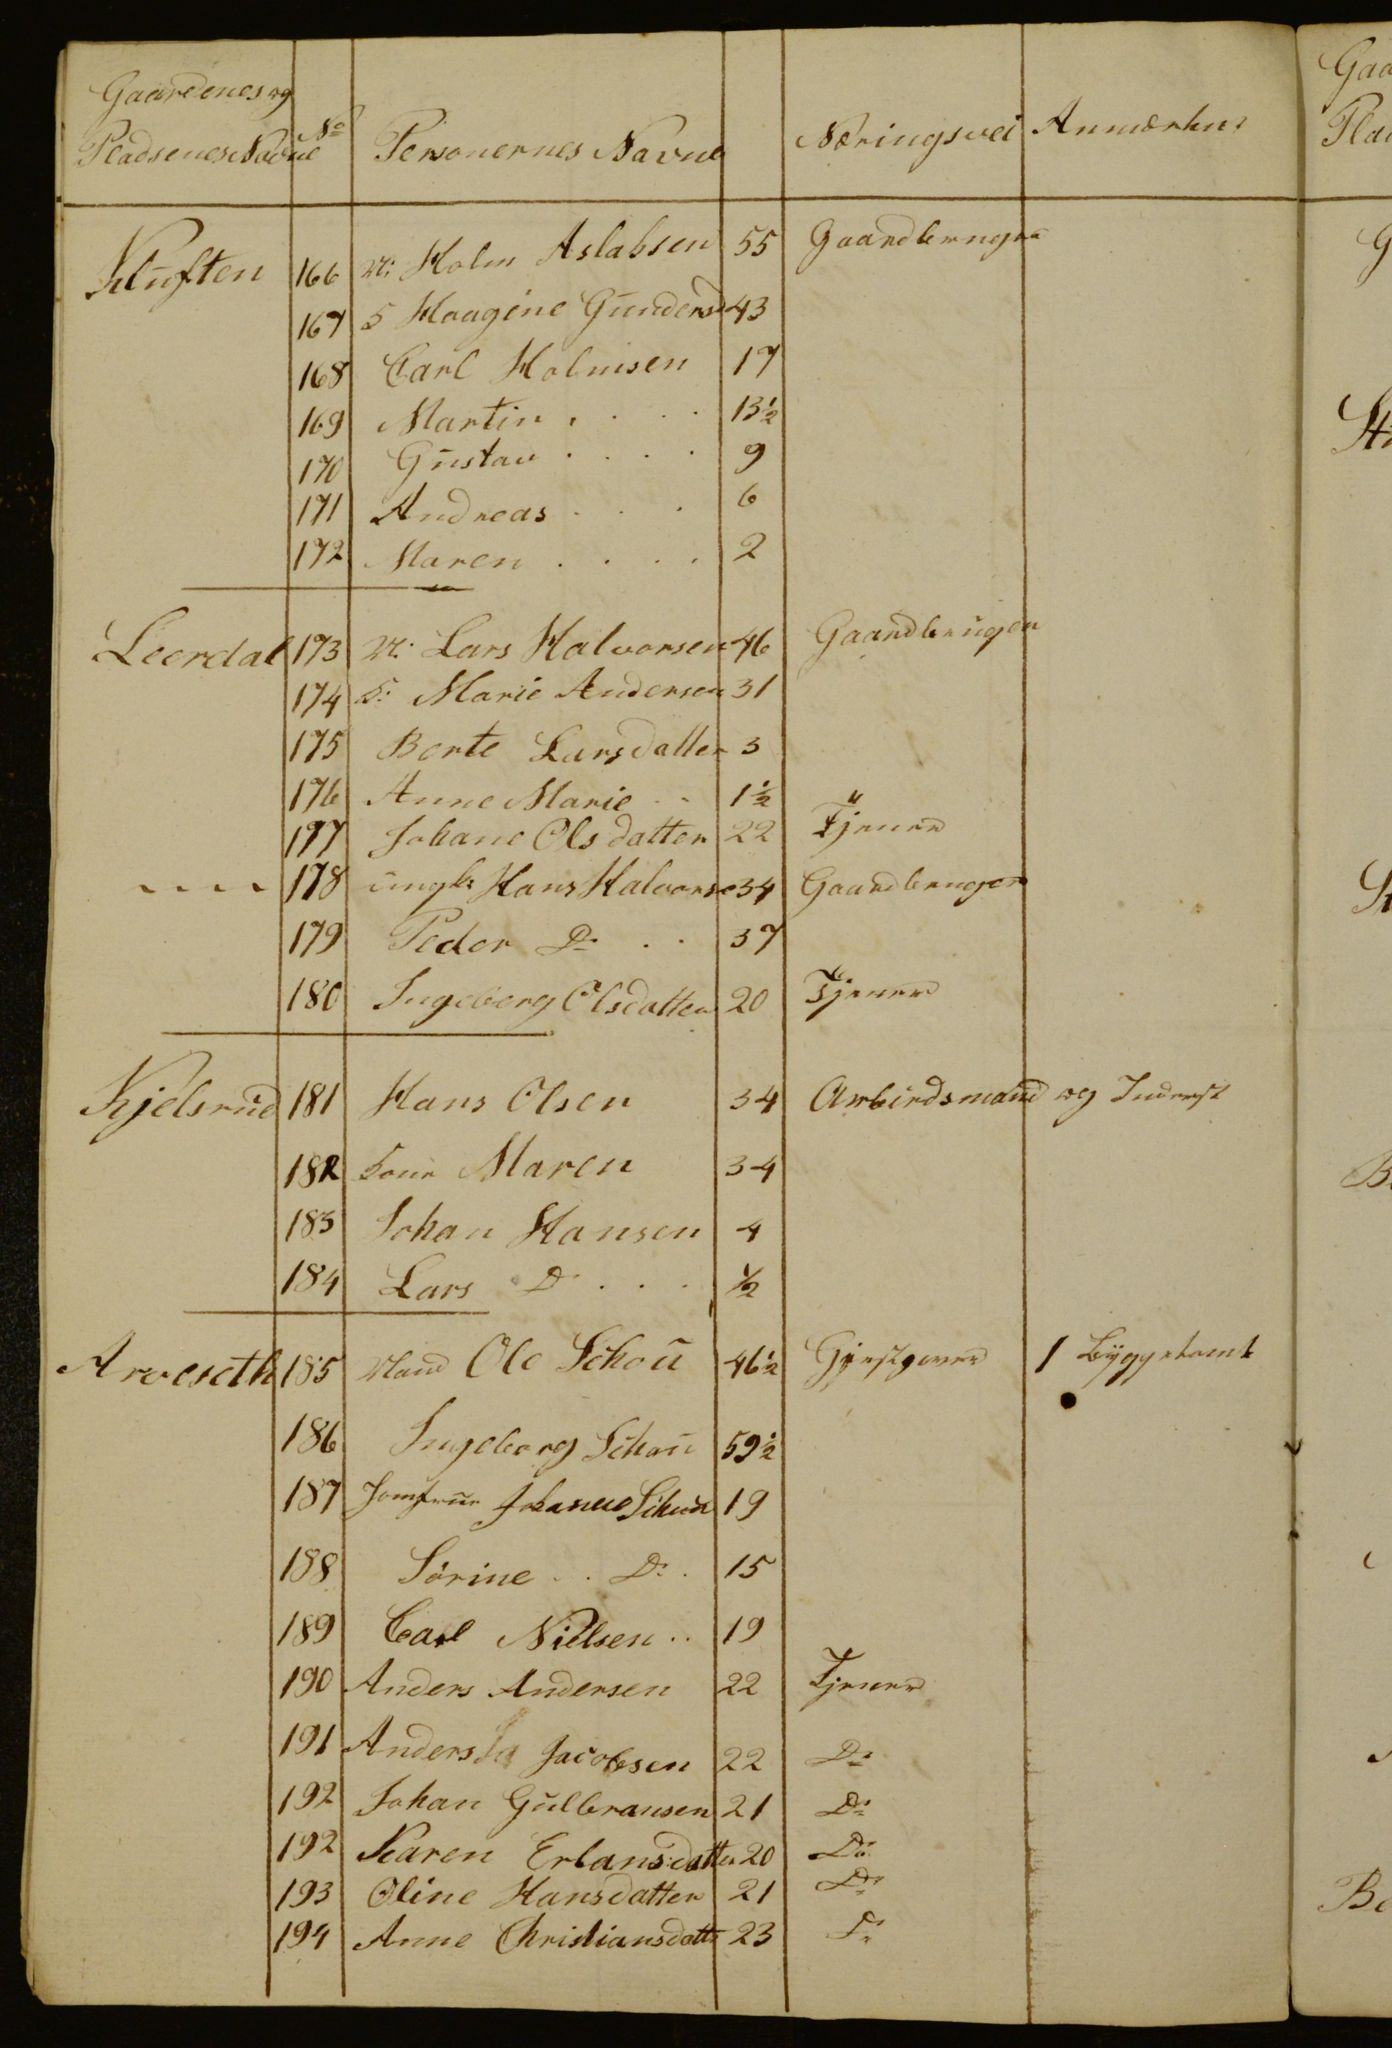 Gaardenes og
Pladsenes Navne No Personernes Navne Næringsvei Anmærkn:
Kluften 166 M: Holm Aslaksen 55 Gaardbruger
167 K Haagine Gundersd 43
168 Carl Holmsen 17
169 Martin . . . . 13½
170 Gustav . . . . 9
171 Andreas . . . 6
172 Maren . . . . 2
Leerdal 173 M: Lars Halvorsen 46 Gaardbruger
174 K: Marie Andersen 31
175 Berte Larsdatter 3
176 Anne Marie . . 1½
177 Johane Olsdatter 22 Tjener
" " " " 178 ungk: Hans Halvorse 34 Gaardbruger
179 Peder Do . . 37
180 Ingeborg Olsdatter 20 Tjener
Kjelsrud 181 Hans Olsen 34 Arbeidsmand og Inderst
182 Kone Maren 34
183 Johan Hansen 4
184 Lars Do . . . ½
Arveseth 185 Mand Ole Schou 46½ Gjestgiver 1 Byggetomt
186 Ingeborg Schou 59½
187 Jomfrue Johanne Schou 19
188 Sörine . . Do . 15
189 Carl Nielsen . . 19
190 Anders Andersen 22 Tjener
191 Anders Jacobsen 22 Do
192 Johan Gulbransen 21 Do
192 Karen Erlansdatter 20 Do
193 Oline Hansdatter 21 Do
194 Anne Christiansdatt 23 Do